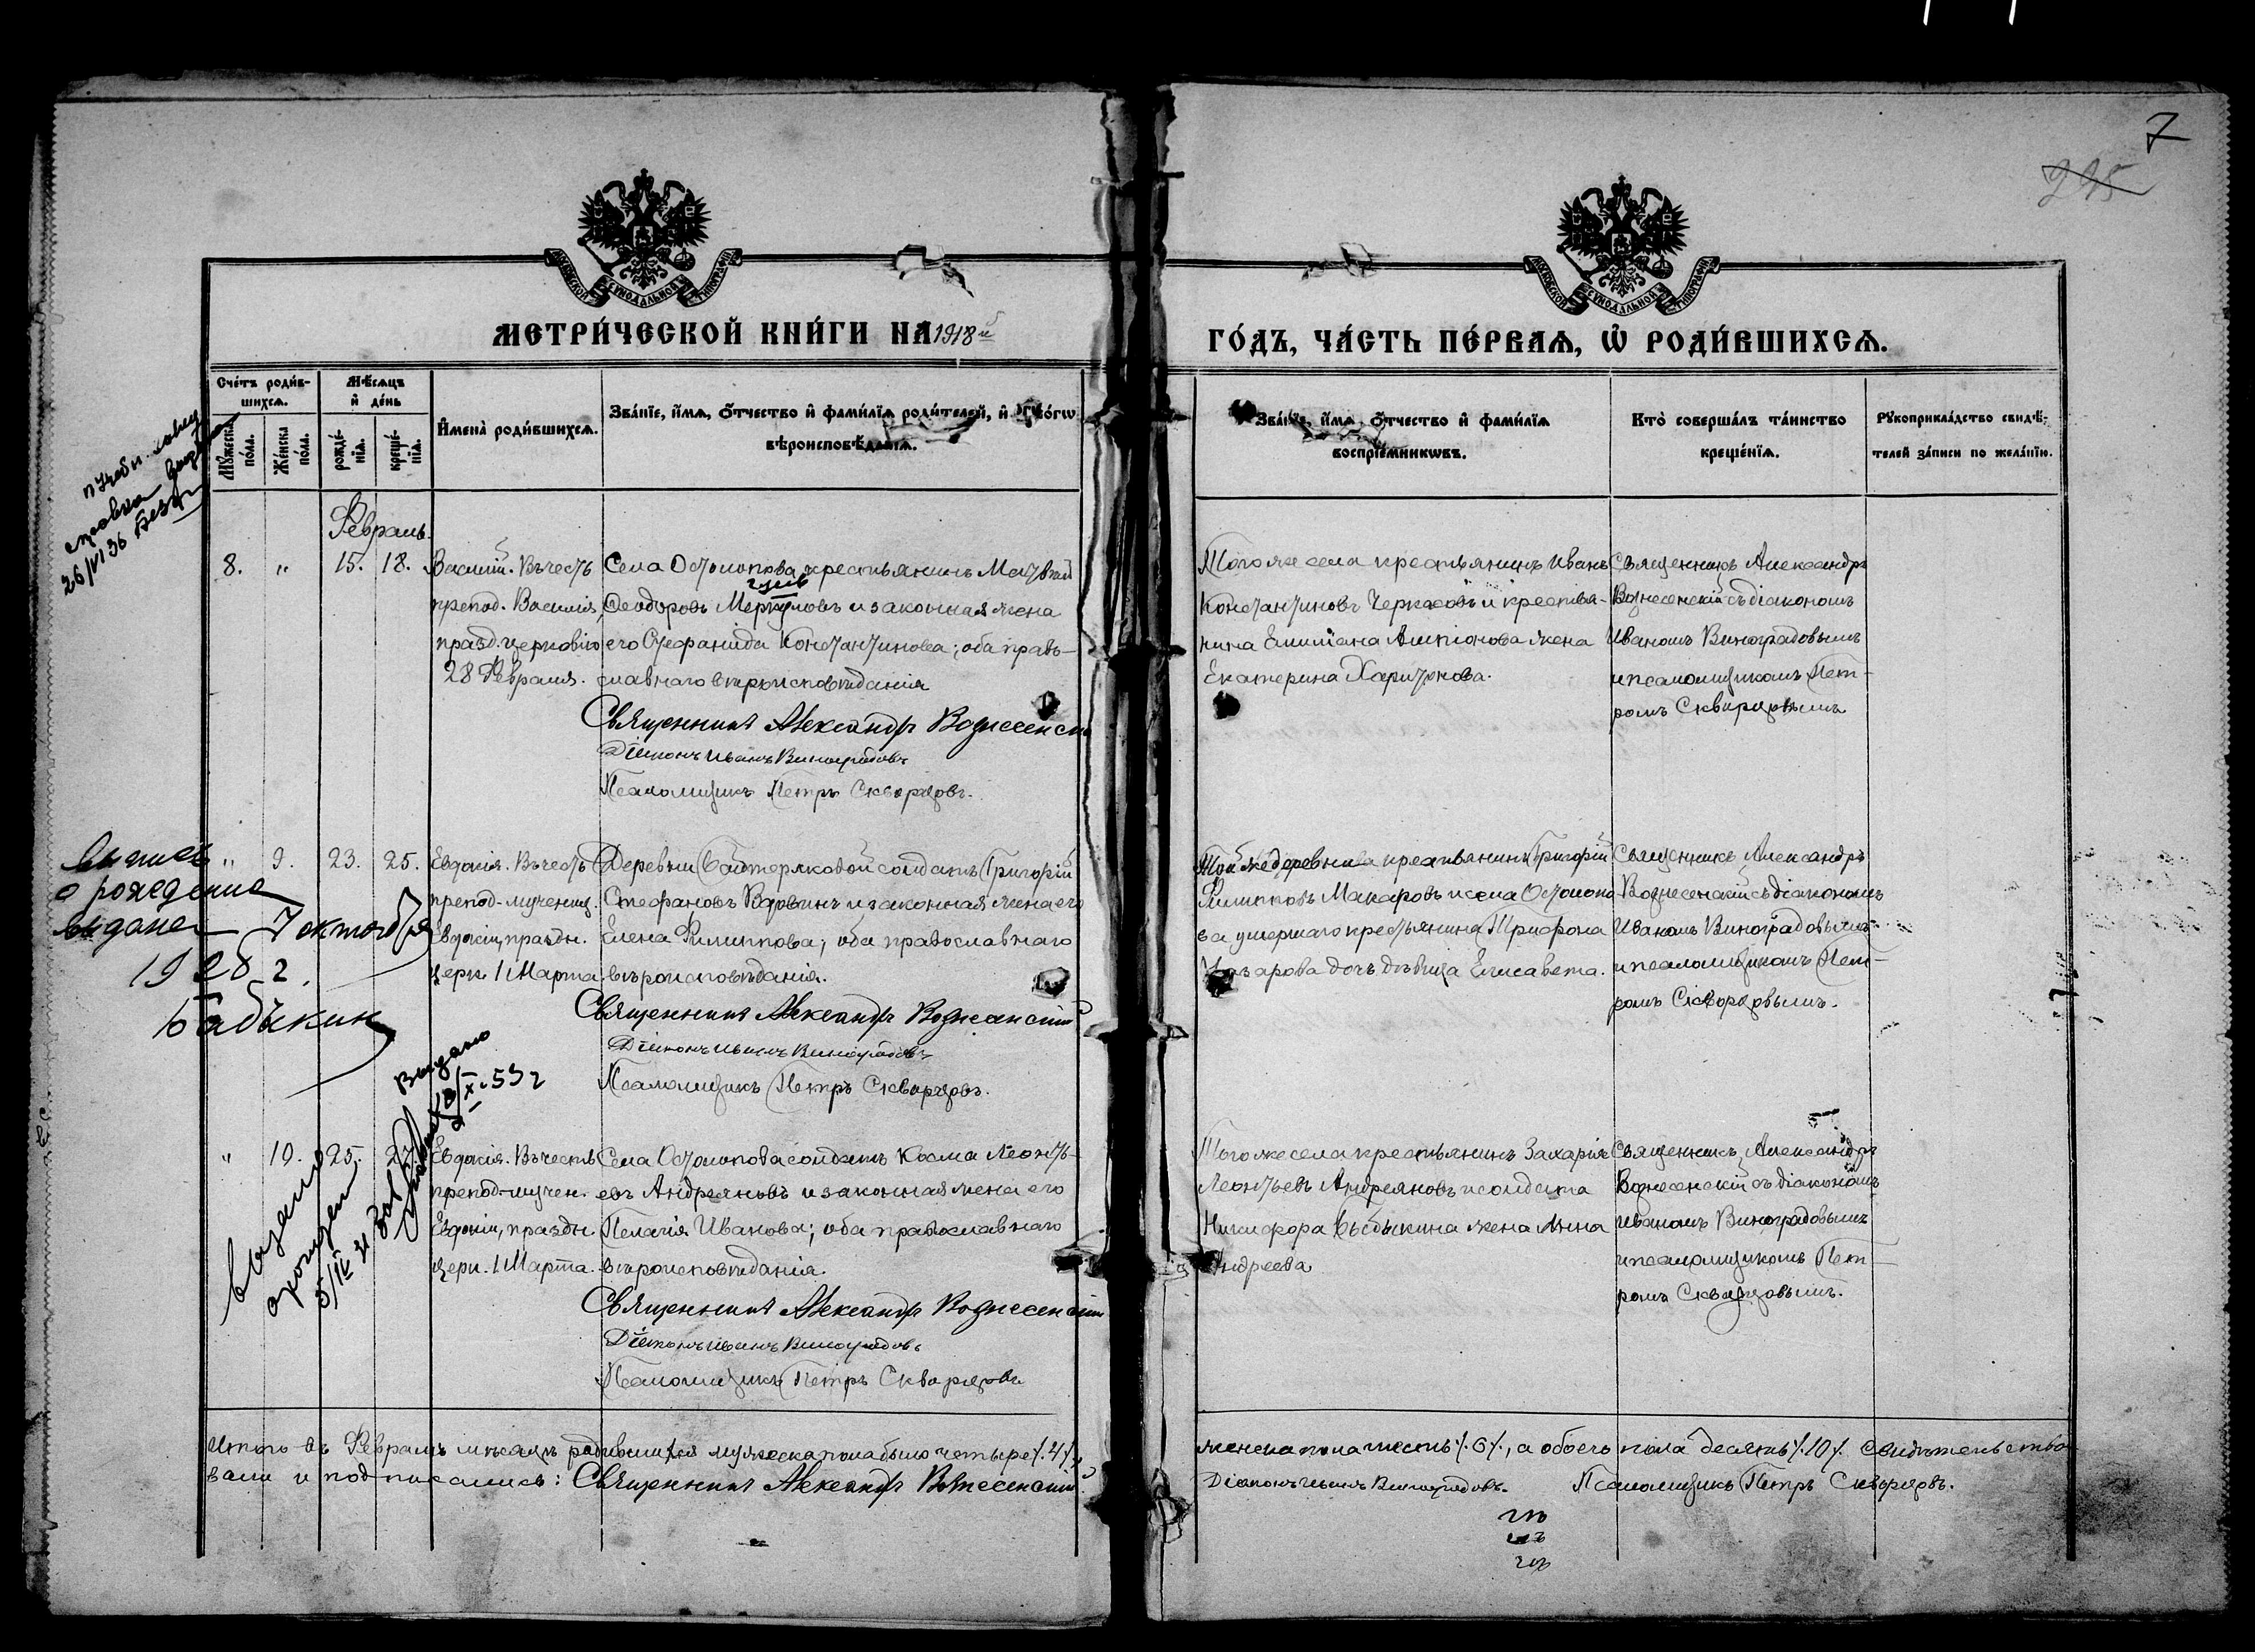 7
225
МОСКОВСКОЙ СѴНОДАЛЬНОЙ ТИПОГРАФІИ
МОСКОВСКОЙ СѴНОДАЛЬНОЙ ТИПОГРАФІИ
МЕТРИ́ЧЕСКОЙ КНИ́ГИ НА 1918 й
ГО́ДЪ, ЧА́СТЬ ПЕ́РВАѦ, Ѡ РОДИ́ВШИХСѦ.
Сче́тъ роди́в-
шихсѧ.
Мѹ́жеска по́ла.
Же́нска по́ла.
Мѣ́сѧцъ
и де́нь
рожде́-
нїѧ.
креще́-
нїѧ.
И҆мена̀ роди́вшихсѧ.
Зва́нїе, и҆́мѧ, ѻ҆́тчество и҆ фами́лїѧ роди́телей, и҆
вѣроисповѣ́данїѧ.
Зва́нїе, и҆́мѧ, ѻ҆́тчество и҆ фами́лїѧ
воспрїе́мникѡвъ.
Кто̀ соверша́лъ та́инство
креще́нїѧ.
Рѹкоприкла́дство свидѣ́-
телей за́писи по жела́нїю.
справка
26/VI 36
Февраль.
8. " 15. 18.
Василій. Въ честь
препод. Василія,
празд. церковію
28 Февраля.
Села Остолопова крестьянинъ Матвей
Ѳеодоровъ Меркуловъ и законная жена
его Стефанида Константинова; оба право-
славнаго вѣроисповѣданія
Священникъ Александръ Вознесенскій
Діаконъ Иванъ Виноградовъ
Псаломщикъ Петръ Скворцовъ.
Того же села крестьянинъ Иванъ
Константиновъ Черкасовъ и крестья-
нина Емилiана жена
Екатерина Харитонова.
Священникъ Александръ
Вознесенскій съ діакономъ
Иваномъ Виноградовымъ
и псаломщикомъ Пет-
ромъ Скворцовымъ
выпись
о рождении
выдана 7 октября
1928 г.
Бабыкин
" 9. 23. 25.
Евдокія. Въ честь
препод.-мучениц.
Евдокіи, праздн.
церк. 1 Марта
Деревни солдатъ Григорій
Стефановъ Вдовинъ и законная жена его
Елена Филиппова; оба православнаго
вѣроисповѣданія.
Священникъ Александръ Вознесенскій
Діаконъ Иванъ Виноградовъ
Псаломщикъ Петръ Скворцовъ.
Той же деревни крестьянинъ Григорій
Филипповъ Макаровъ и села Остолопо-
ва умершаго крестьянина Трифона
Назарова дочь дѣвица Елисавета.
Священникъ Александръ
Вознесенскій съ діакономъ
Иваномъ Виноградовымъ
и псаломщикомъ Пет-
ромъ Скворцовымъ.
Выдано
" 10. 25. 27.
Евдокія. Въ честь
препод-мучен.
Евдокіи, праздн.
церк. 1 Марта.
Села Остолопова солдатъ Косма Леонть-
евъ Андреяновъ и законная жена его
Пелагія Иванова; оба православнаго
вѣроисповѣданія.
Священникъ Александръ Вознесенскій
Діаконъ Иванъ Виноградовъ
Псаломщикъ Петръ Скворцовъ
Того же села крестьянинъ Захарія
Леонтьевъ Андреяновъ и солдата
Никифора жена Анна
Андреева
Священникъ Александръ
Вознесенскій съ діакономъ
Иваномъ Виноградовымъ
и псаломщикомъ Пет-
ромъ Скворцовымъ.
Итого въ Февралѣ мѣсяцѣ родившихся мужеска пола было четыре /.4/.,
женска пола шесть /.6/., а обоего пола десять /.10/. Свидѣтельство-
вали и подписались: Священникъ Александръ Вознесенскій
Діаконъ Иванъ Виноградовъ. Псаломщикъ Петръ Скворцовъ.